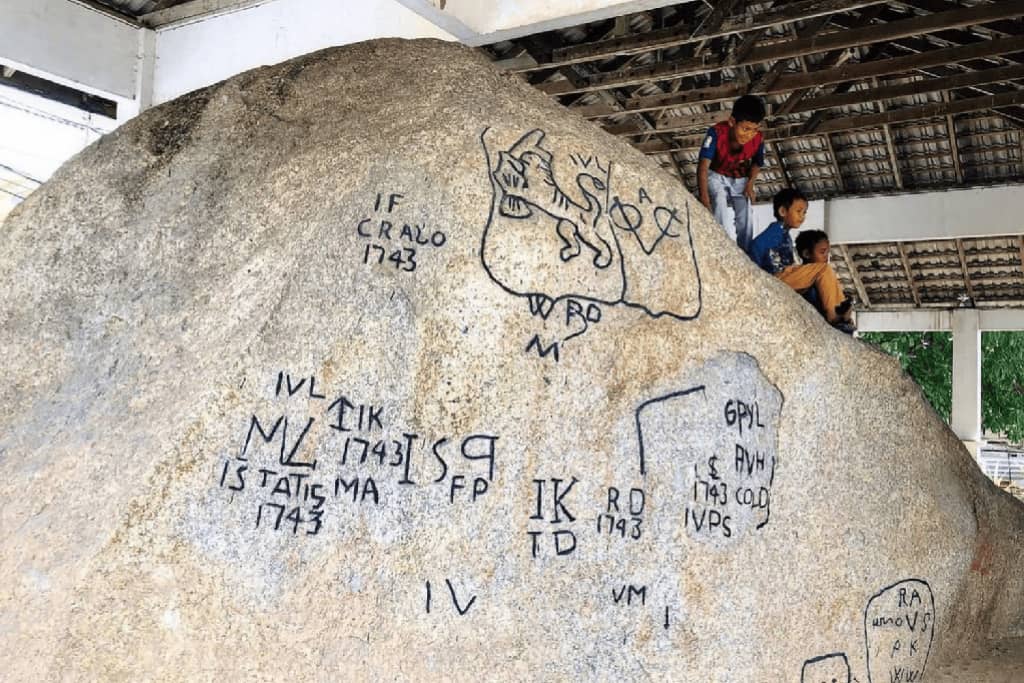 IVL
A
IF
CRALO
1743
W RD
M
IVL
IK
ML
1743
I'S
IS TATIS MA
FP
1743
IK
TD
RD
1743
GPYL
AVH
1743 COLD
IVPS
IV
VM
RA
VS
PK